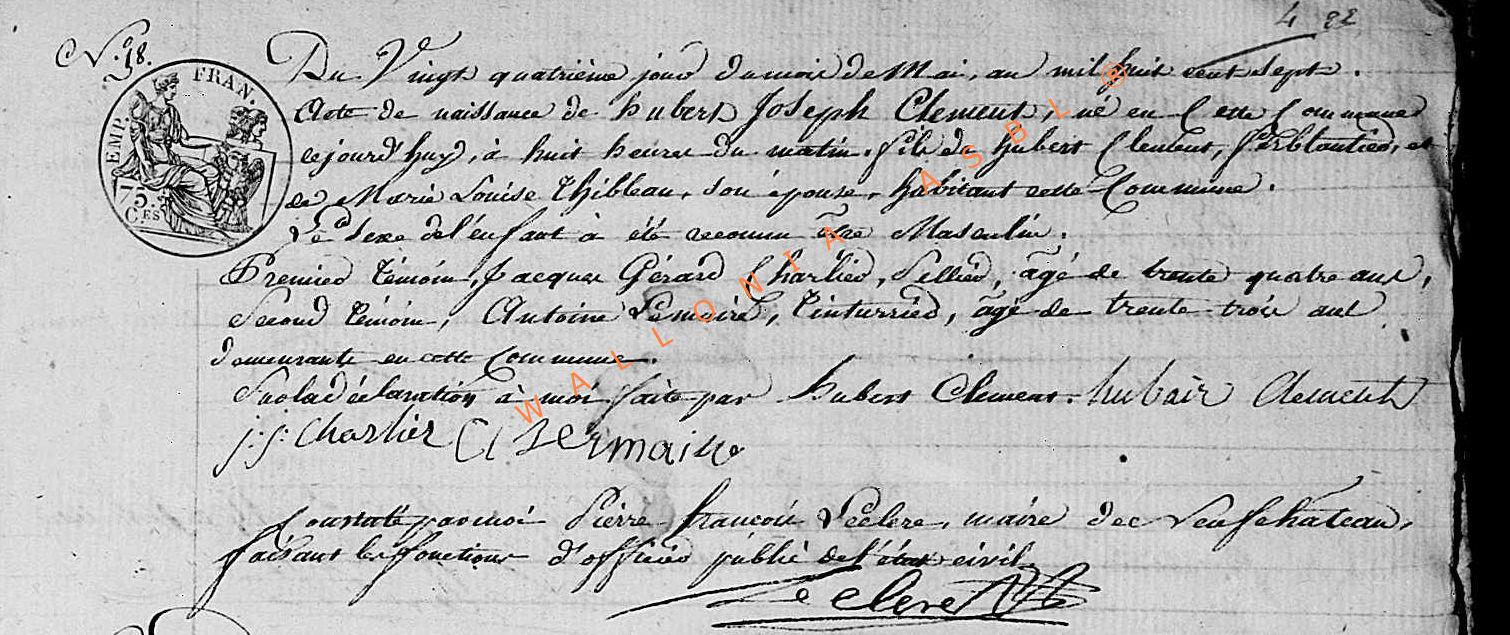 4 22
N.° 18.
EMP. FRAN.
75. C.ES
Du Vingt quatrième jour du mois de Mai, an mil huit cent Sept.
Acte de naissance de hubert Joseph Clement, né en Cette Commune
cejourd'huy, à huit heures du matin. fils de hubert Clement, ferblantier, et
de Marie Louise Thibleau, son épouse, habitant cette Commune.
Le Sexe de l'enfant à été reconnu être Masculin.
Premier témoin, Jacques Gérard Charlier, Sellier, agé de trente quatre ans,
Second témoin, Antoine Lemaire, Tinturrier, agé de trente trois ans
demeurants en cette Commune.
Sur la déclaration à moi faite par hubert Clement. hubair Clement
j. j. Charlier Lermaire
Constaté par moi Pierre françois Leclere, maire de Neufchâteau,
faisant les fonctions d'officier public de l'état civil.
Leclere
WALLONIA ASBL @